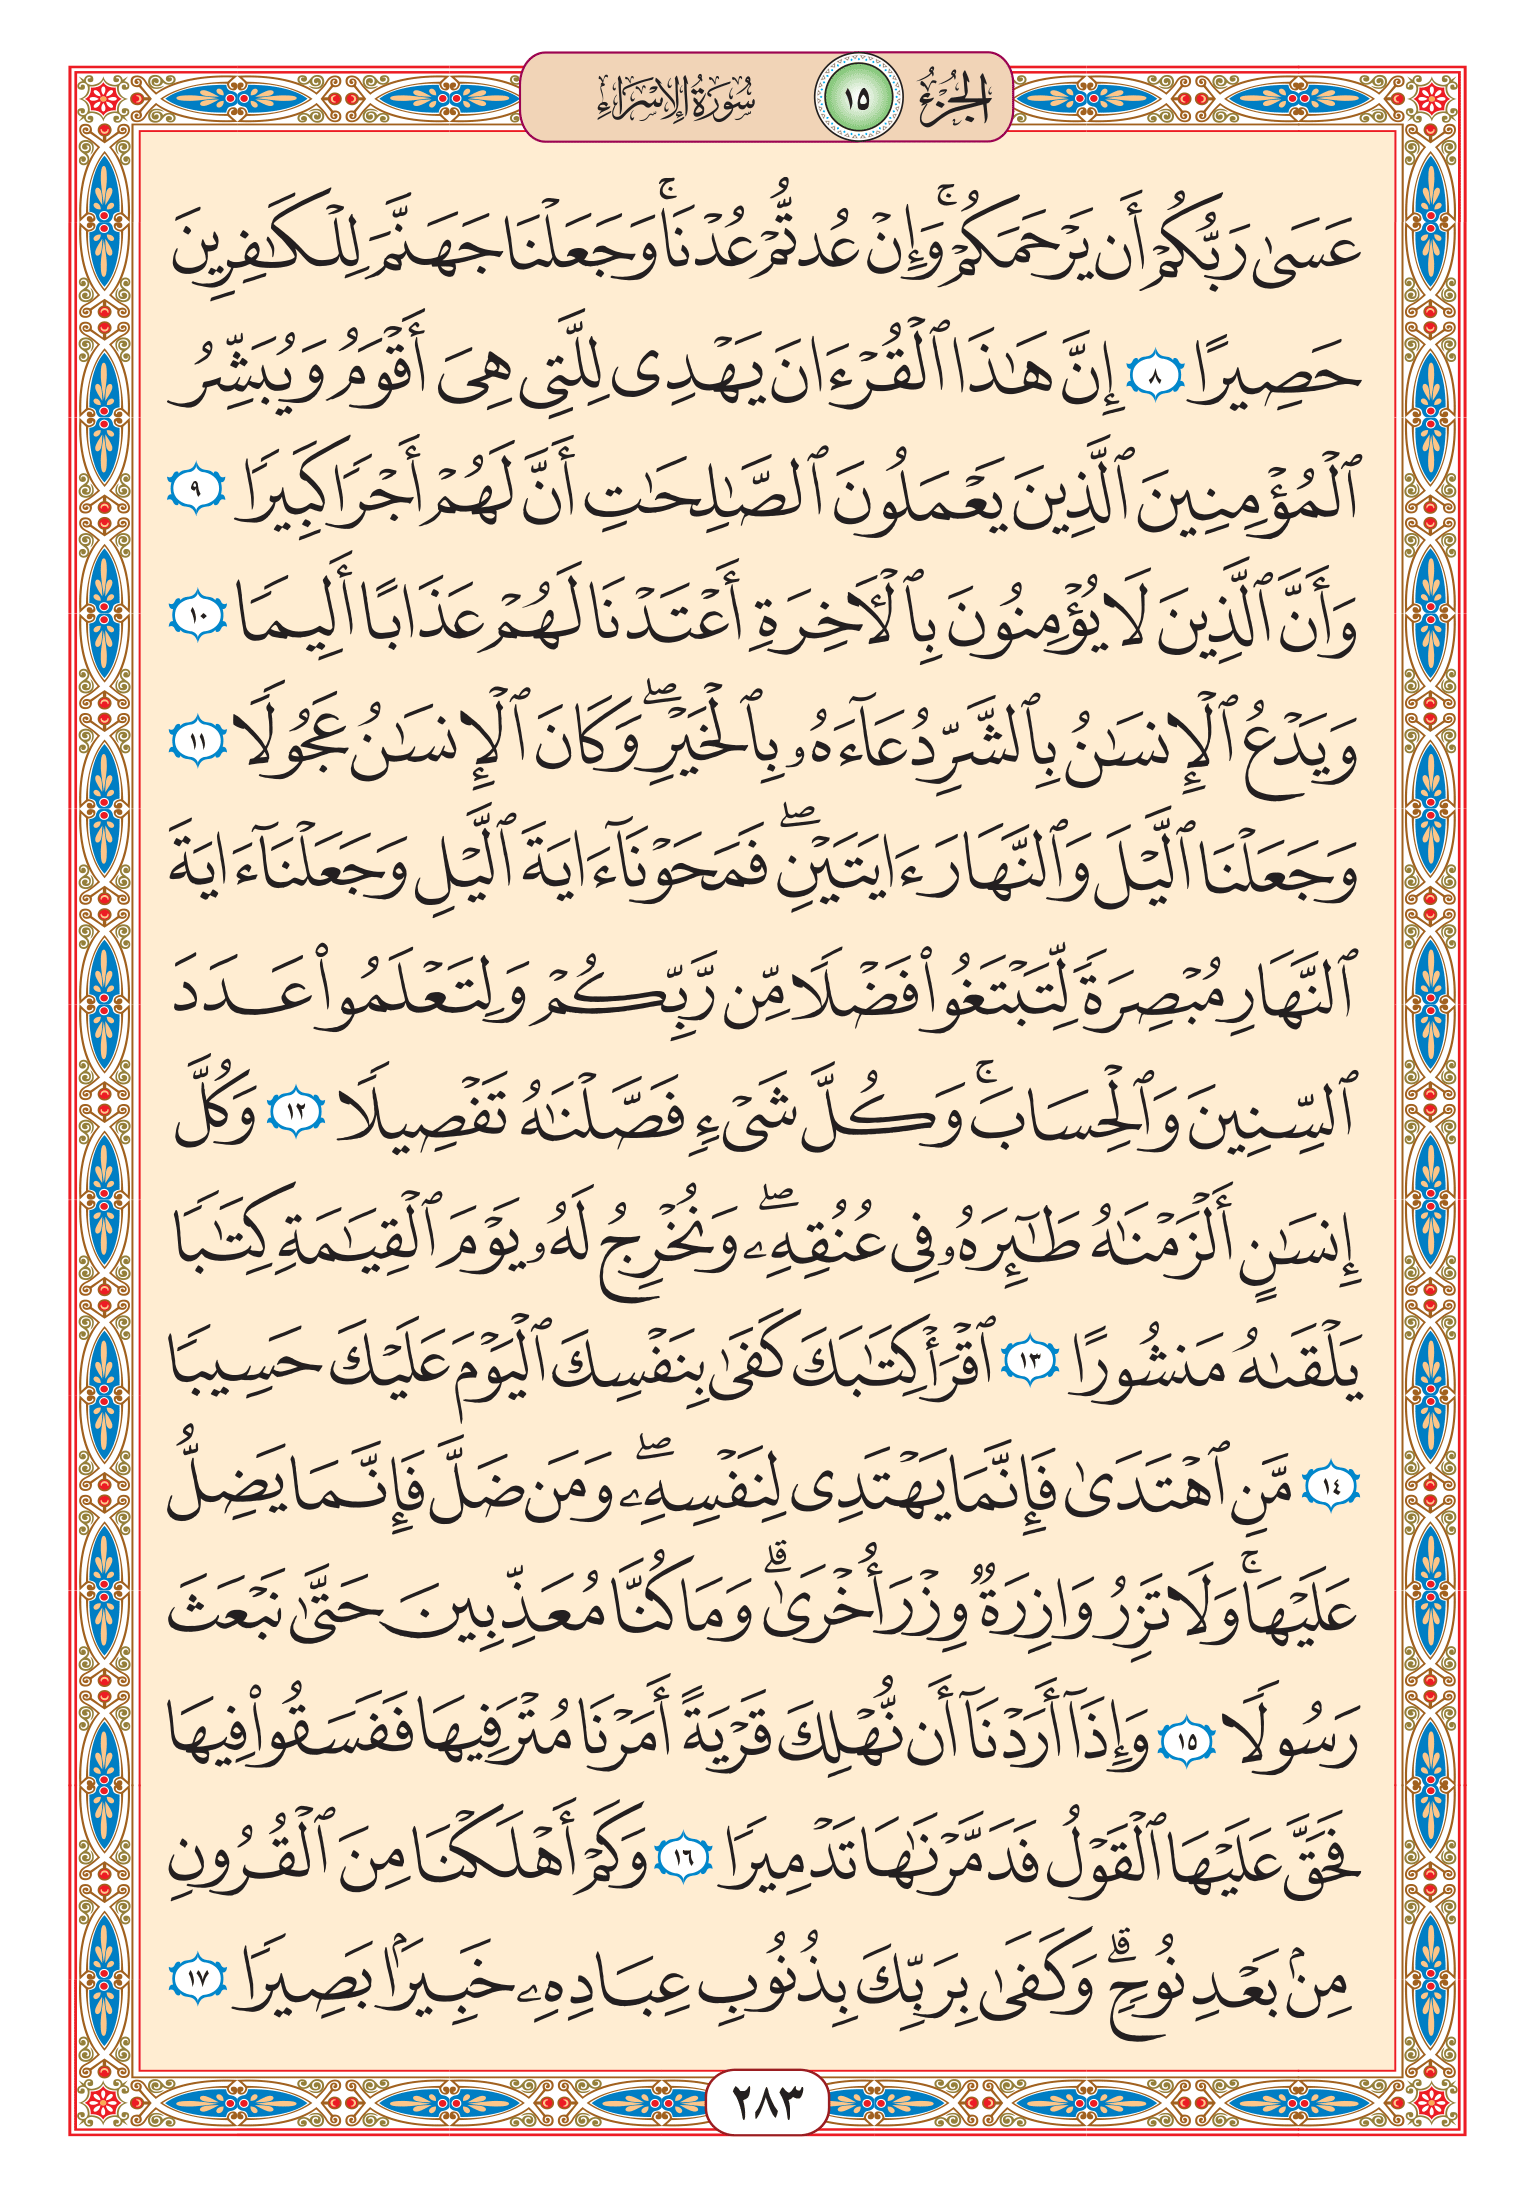 الجزء ١٥ سورة الإسراء
عَسَىٰ رَبُّكُمْ أَن يَرْحَمَكُمْ ۚ وَإِنْ عُدتُّمْ عُدْنَا ۚ وَجَعَلْنَا جَهَنَّمَ لِلْكَـٰفِرِينَ
حَصِيرًا ٨ إِنَّ هَـٰذَا ٱلْقُرْءَانَ يَهْدِى لِلَّتِى هِىَ أَقْوَمُ وَيُبَشِّرُ
ٱلْمُؤْمِنِينَ ٱلَّذِينَ يَعْمَلُونَ ٱلصَّـٰلِحَـٰتِ أَنَّ لَهُمْ أَجْرًا كَبِيرًا ٩
وَأَنَّ ٱلَّذِينَ لَا يُؤْمِنُونَ بِٱلْـَٔاخِرَةِ أَعْتَدْنَا لَهُمْ عَذَابًا أَلِيمًا ١٠
وَيَدْعُ ٱلْإِنسَـٰنُ بِٱلشَّرِّ دُعَآءَهُۥ بِٱلْخَيْرِ ۖ وَكَانَ ٱلْإِنسَـٰنُ عَجُولًا ١١
وَجَعَلْنَا ٱلَّيْلَ وَٱلنَّهَارَ ءَايَتَيْنِ ۖ فَمَحَوْنَآ ءَايَةَ ٱلَّيْلِ وَجَعَلْنَآ ءَايَةَ
ٱلنَّهَارِ مُبْصِرَةً لِّتَبْتَغُوا۟ فَضْلًا مِّن رَّبِّكُمْ وَلِتَعْلَمُوا۟ عَدَدَ
ٱلسِّنِينَ وَٱلْحِسَابَ ۚ وَكُلَّ شَىْءٍ فَصَّلْنَـٰهُ تَفْصِيلًا ١٢ وَكُلَّ
إِنسَـٰنٍ أَلْزَمْنَـٰهُ طَـٰٓئِرَهُۥ فِى عُنُقِهِۦ ۖ وَنُخْرِجُ لَهُۥ يَوْمَ ٱلْقِيَـٰمَةِ كِتَـٰبًا
يَلْقَىٰهُ مَنشُورًا ١٣ ٱقْرَأْ كِتَـٰبَكَ كَفَىٰ بِنَفْسِكَ ٱلْيَوْمَ عَلَيْكَ حَسِيبًا
١٤ مَّنِ ٱهْتَدَىٰ فَإِنَّمَا يَهْتَدِى لِنَفْسِهِۦ ۖ وَمَن ضَلَّ فَإِنَّمَا يَضِلُّ
عَلَيْهَا ۚ وَلَا تَزِرُ وَازِرَةٌ وِزْرَ أُخْرَىٰ ۗ وَمَا كُنَّا مُعَذِّبِينَ حَتَّىٰ نَبْعَثَ
رَسُولًا ١٥ وَإِذَآ أَرَدْنَآ أَن نُّهْلِكَ قَرْيَةً أَمَرْنَا مُتْرَفِيهَا فَفَسَقُوا۟ فِيهَا
فَحَقَّ عَلَيْهَا ٱلْقَوْلُ فَدَمَّرْنَـٰهَا تَدْمِيرًا ١٦ وَكَمْ أَهْلَكْنَا مِنَ ٱلْقُرُونِ
مِنۢ بَعْدِ نُوحٍ ۗ وَكَفَىٰ بِرَبِّكَ بِذُنُوبِ عِبَادِهِۦ خَبِيرًۢا بَصِيرًا ١٧
٢٨٣